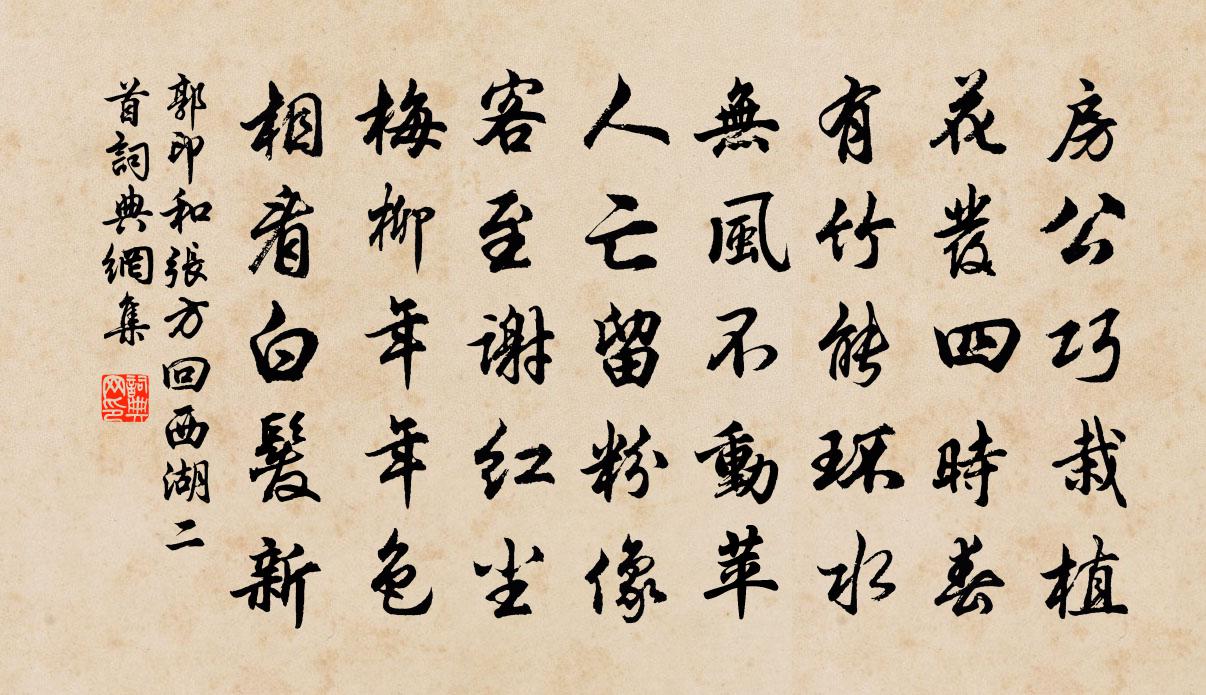 房公巧栽植
花發四時春
有竹能環水
無風不動苹
人亡留粉像
客至謝红尘
梅柳年年色
相看白髮新
郭印和張方回西湖二
首詞典網集
詞典网印